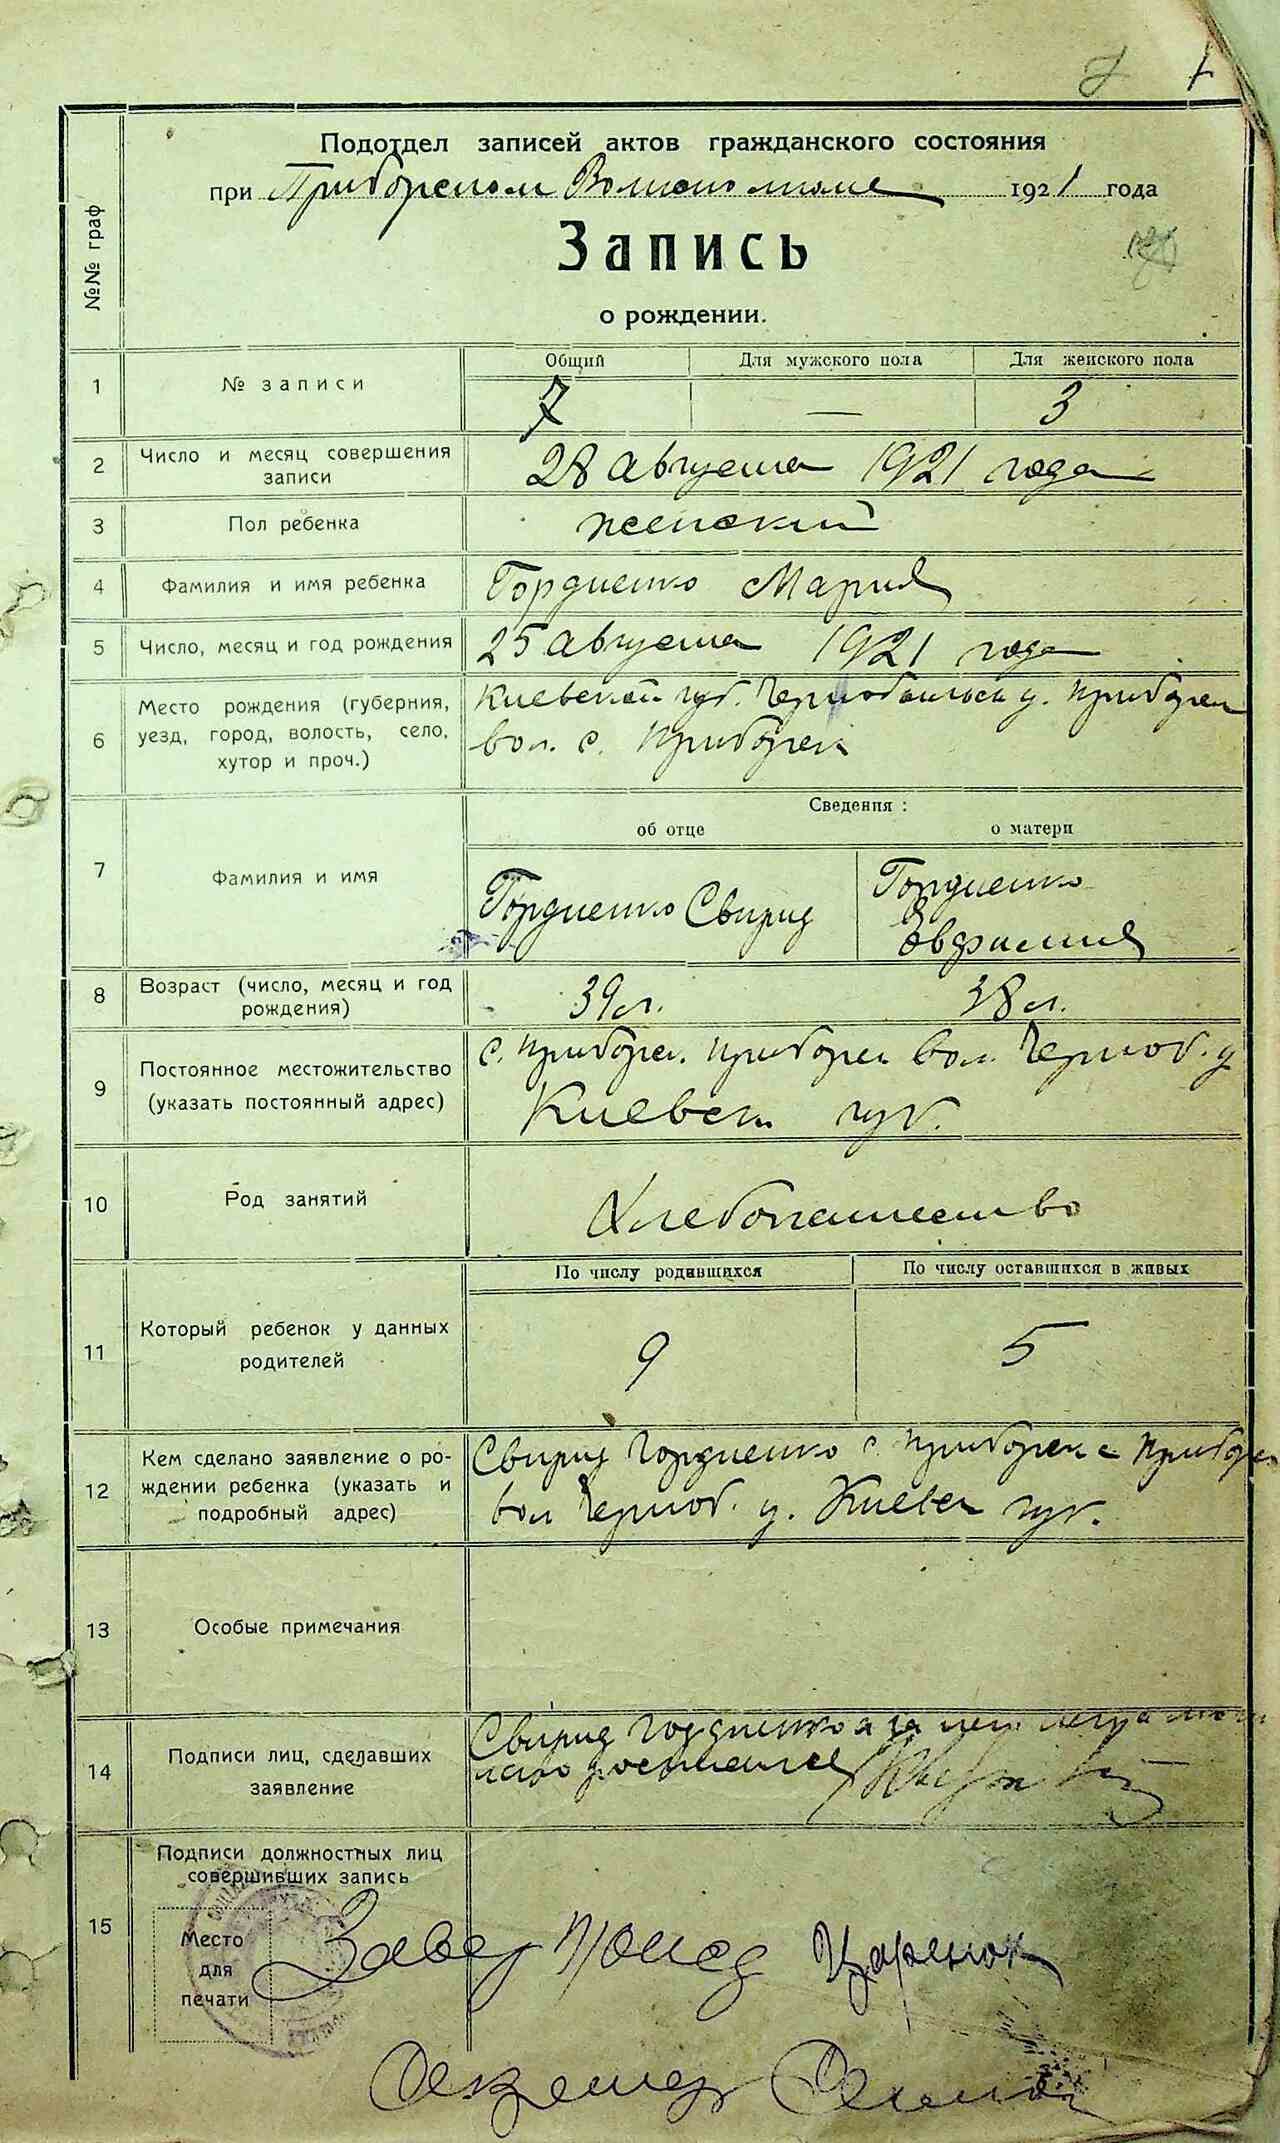 7
Подотдел записей актов гражданского состояния
при Приборском Волисполкоме 1921 года
Запись
о рождении.
№№ граф
Общий Для мужского пола Для женского пола
1 № записи 7 — 3
2 Число и месяц совершения
записи
28 августа 1921 года
3 Пол ребенка женский
4 Фамилия и имя ребенка Гордиенко Мария
5 Число, месяц и год рождения 25 августа 1921 года
6 Место рождения (губерния,
уезд, город, волость, село,
хутор и проч.)
Киевской губ. Чернобыльск у. Приборск
вол. с. Приборск
Сведения:
об отце о матери
7 Фамилия и имя
Гордиенко Свирид
Гордиенко
Евфимия
8 Возраст (число, месяц и год
рождения)
39 л. 38 л.
9 Постоянное местожительство
(указать постоянный адрес)
с. Приборск. Приборск вол. Черноб. у
Киевск. губ.
10 Род занятий Хлебопашество
По числу родившихся По числу оставшихся в живых
11 Который ребенок у данных
родителей
9 5
12 Кем сделано заявление о ро-
ждении ребенка (указать и
подробный адрес)
Свирид Гордиенко с. Приборск Приборск
вол Черноб. у. Киевск губ.
13 Особые примечания
14 Подписи лиц, сделавших
заявление
Свирид Гордиенко а за его
росписался
15 Подписи должностных лиц
совершивших запись
Место
для
печати
Завед Подотд Царенок
Секретарь